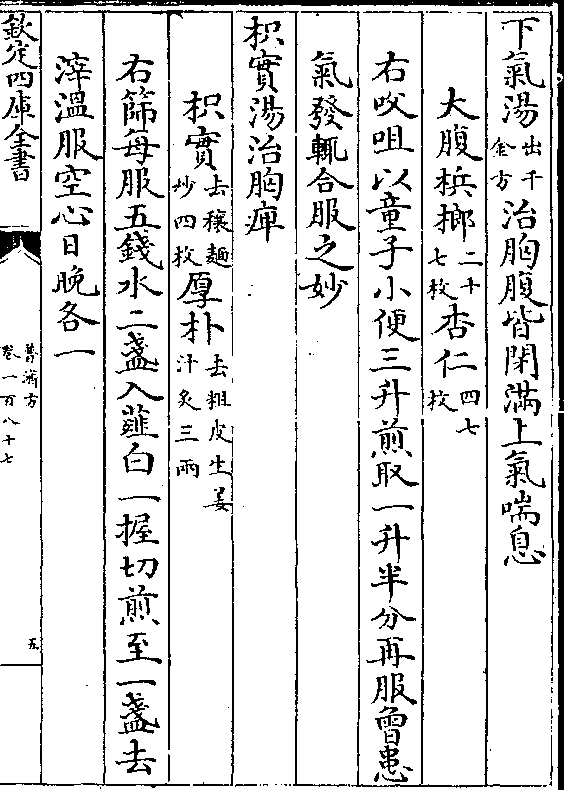 下氣湯出千金方治胸腹皆閉滿上氣喘息
大腹梹榔二十七枚杏仁四七枚
右咬咀以童子小便三升煎取一升半分再服曾患
氣發輒合服之妙
枳實湯治胸痺
枳實去穰麵炒四枚厚朴去粗皮生姜汁炙三兩
右篩每服五錢水二盞入薤白一握切煎至一盞去
滓溫服空心日晚各一
欽定四庫全書
普濟方
卷一百八十七
五